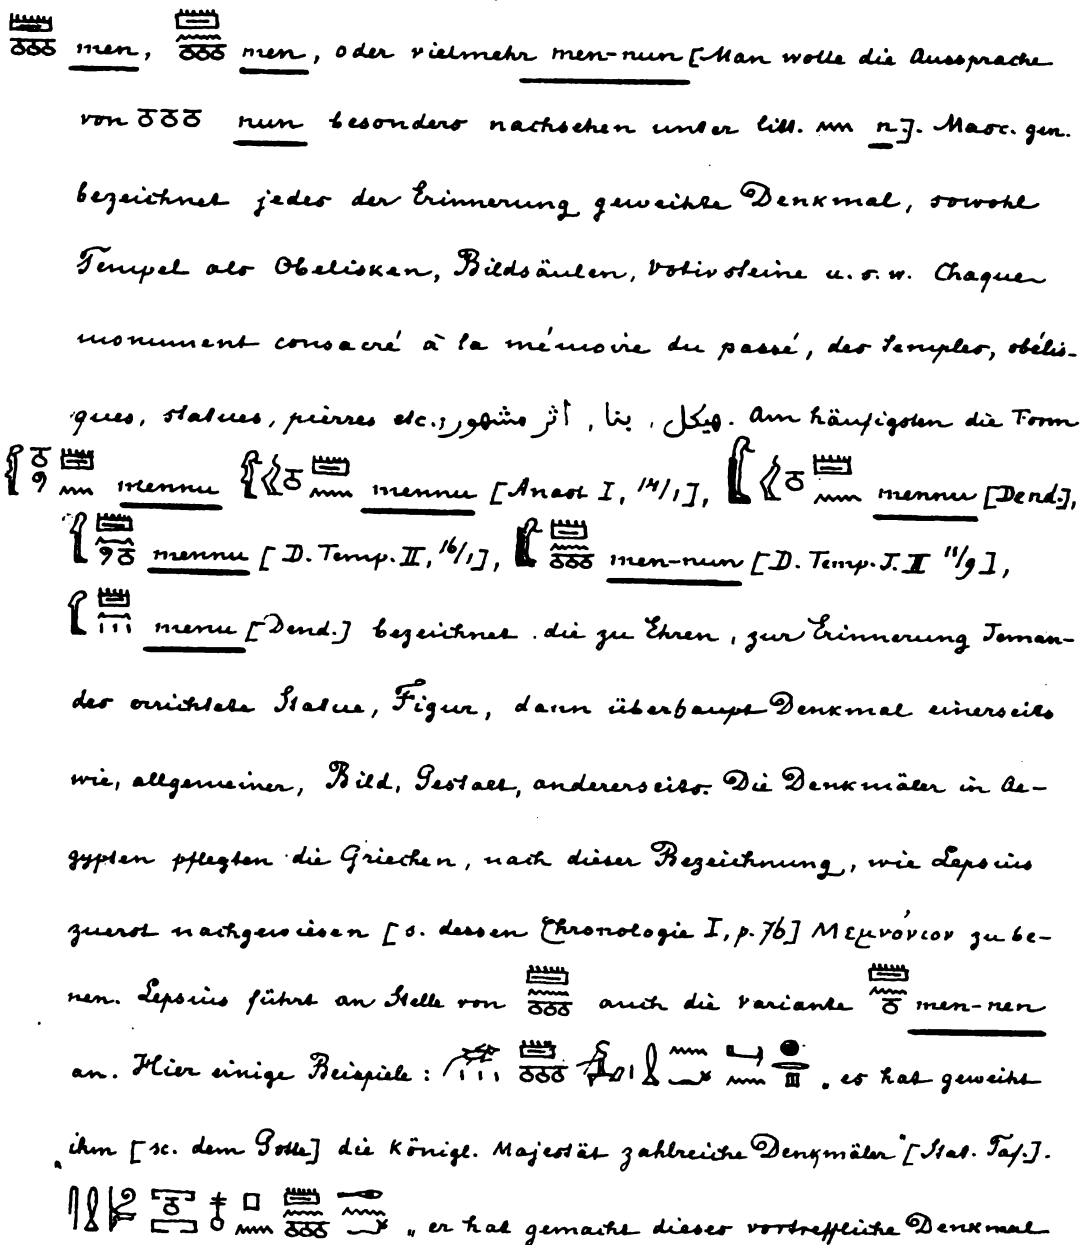 men, men, oder vielmehr men-nun [Man wolle die Aussprache
von nun besonders nachsehen unter litt. n.]. Masc. gen.
bezeichnet jedes der Erinnerung geweihte Denkmal, sowohl
Tempel als Obelisken, Bildsäulen, Votivsteine u. s. w. Chaque
monument consacré à la mémoire du passé, des temples, obélis-
ques, statues, pierres etc.; هيكل, بنا, أثر مشهور. Am häufigsten die Form
mennu mennu [Anast I, 14/1], mennu [Dend.],
mennu [D. Temp. II, 16/1], men-nun [D. Temp. J. II 11/9],
menu [Dend.] bezeichnet die zu Ehren, zur Erinnerung Jeman-
des errichtete Statue, Figur, dann überhaupt Denkmal einerseits
wie, allgemeiner, Bild, Gestalt, andererseits. Die Denkmäler in Ae-
gypten pflegten die Griechen, nach dieser Bezeichnung, wie Lepsius
zuerst nachgewiesen [s. dessen Chronologie I, p. 76] Μεμνόνιον zu be-
nen. Lepsius führt an Stelle von auch die Variante men-nen
an. Hier einige Beispiele: „es hat geweiht
ihm [sc. dem Gotte] die Königl. Majestät zahlreiche Denkmäler" [Stat. Taf.].
„er hat gemacht dieses vortreffliche Denkmal